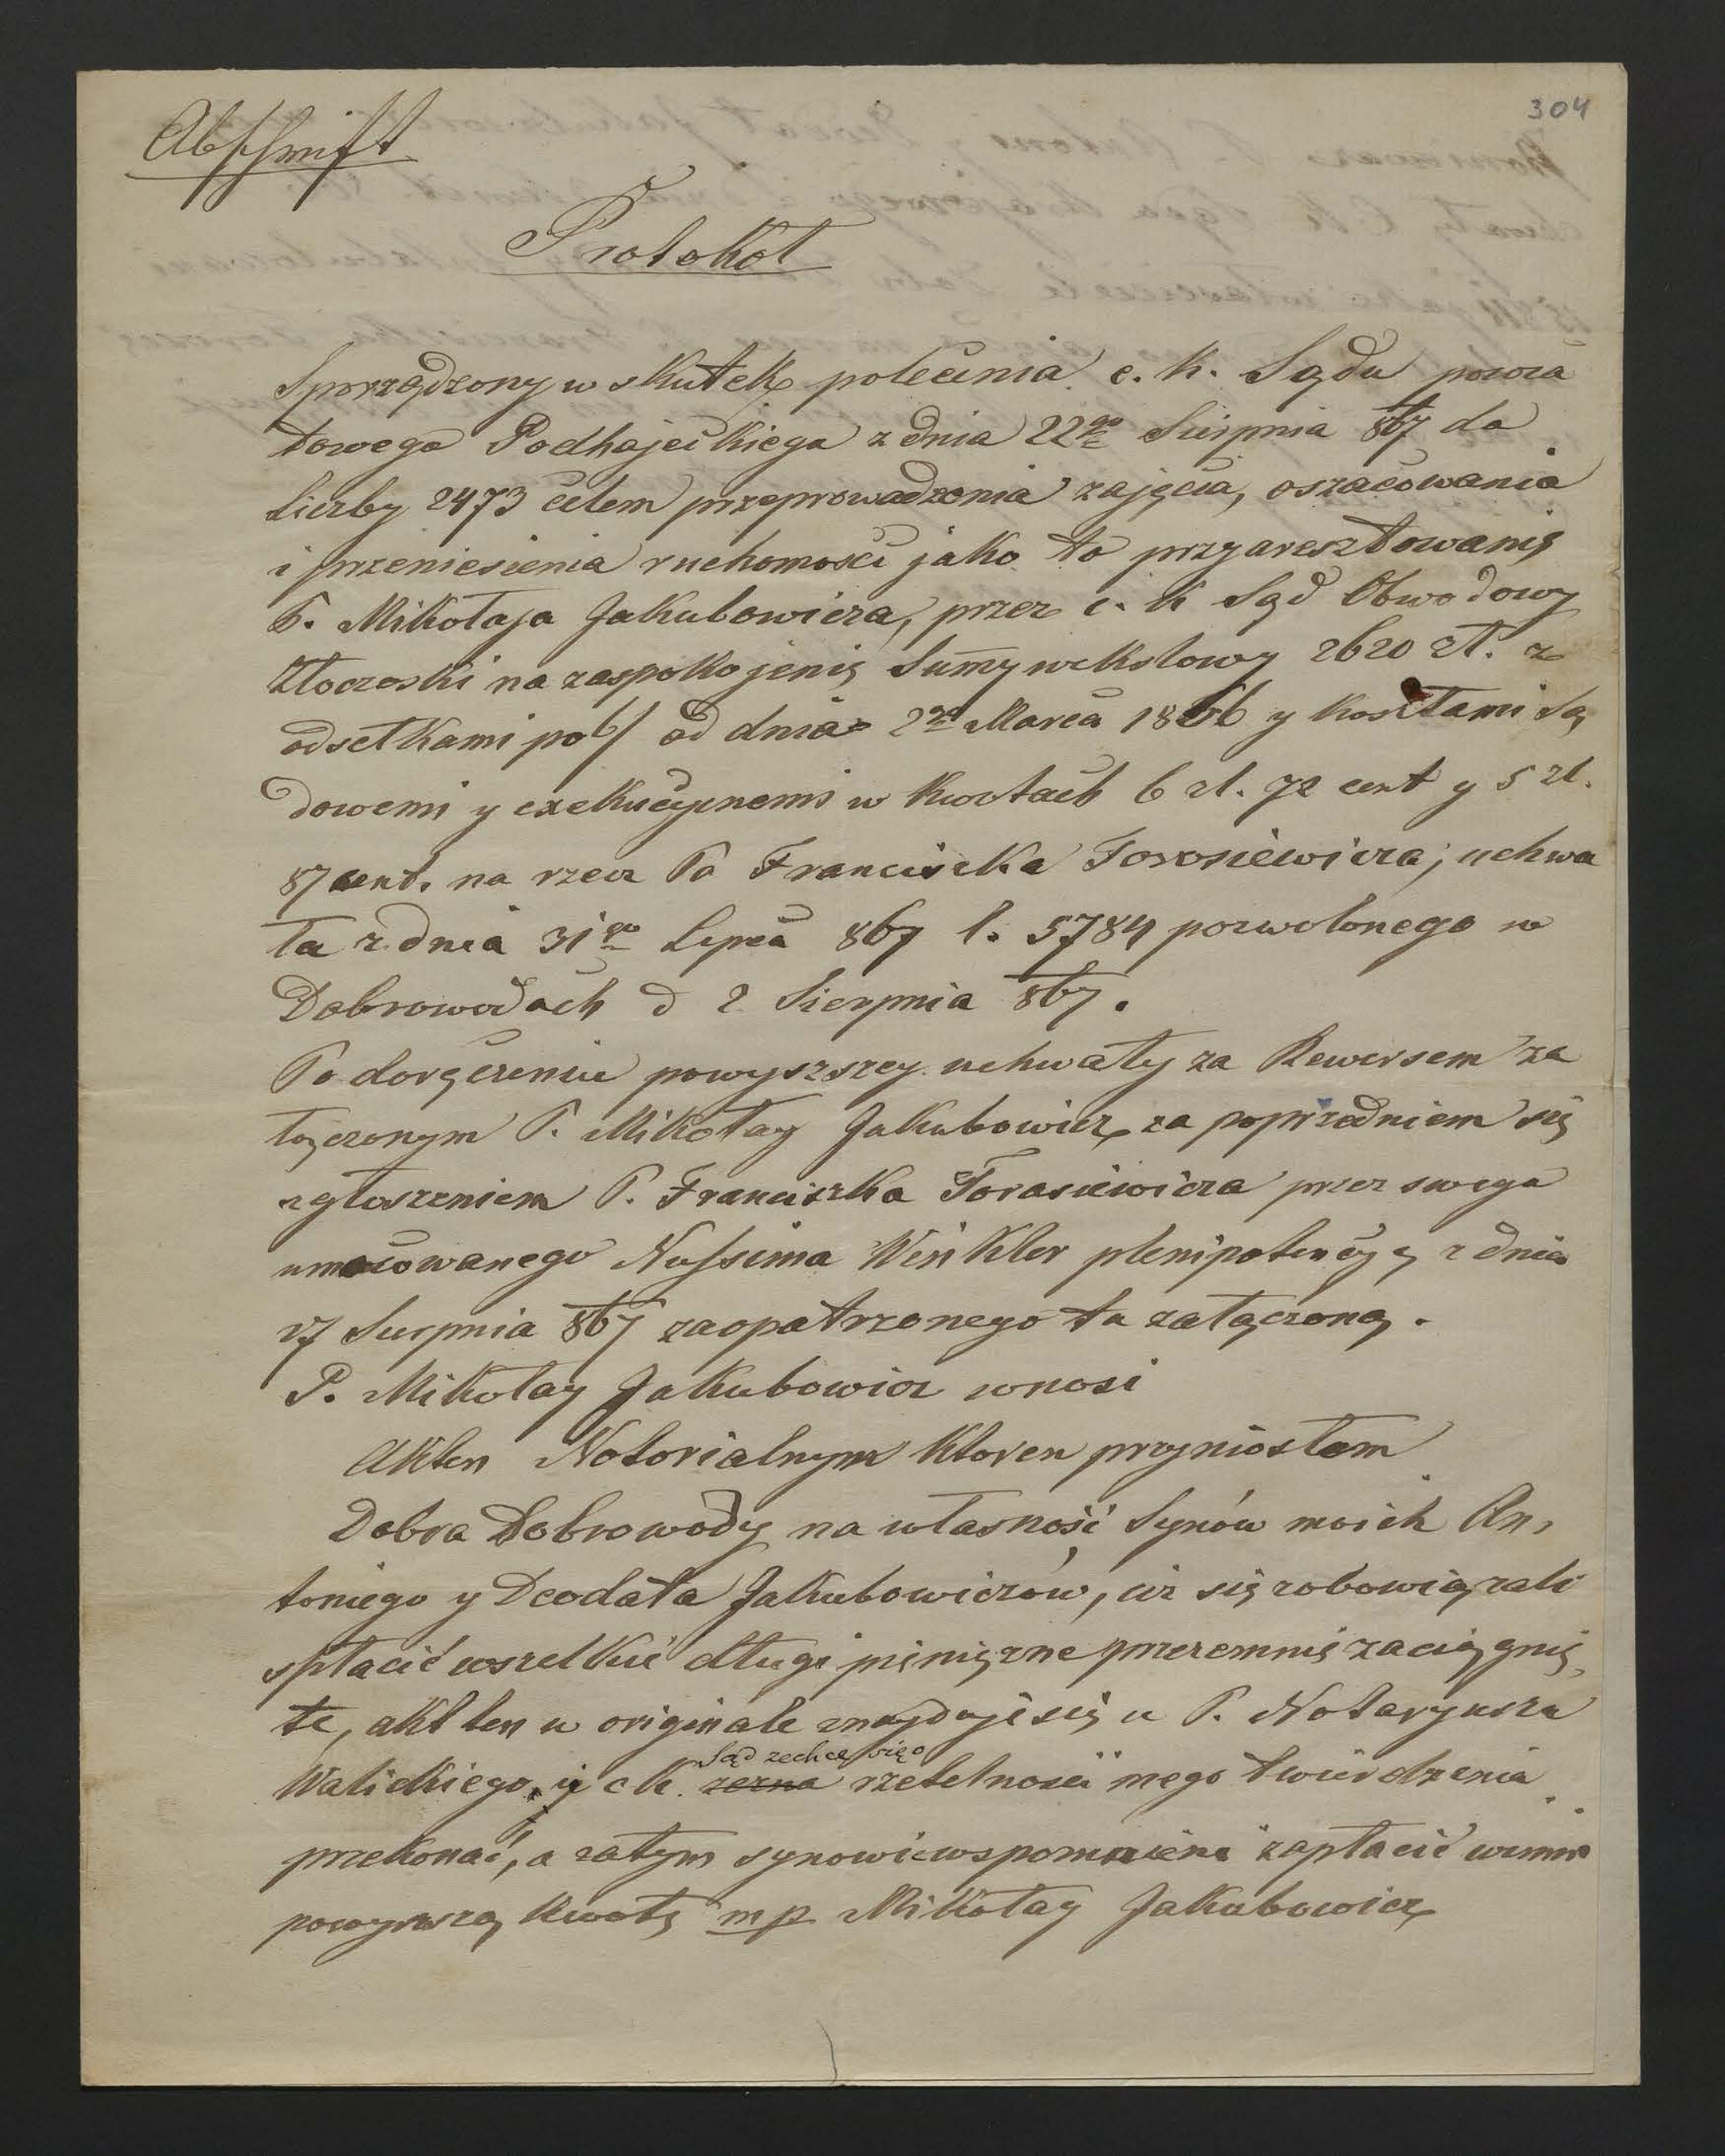 304
Abschrift
Protokoł
Sporządzony w skutek polecenia c. k. Sądu powia
towego Podhajeckiego z dnia 22go Sierpnia 867 do
Liczby 2473 celem przeprowadzenia zajęcia, oszacowania
i przeniesienia ruchomości jako to przyaresztowanię
P. Mikołaja Jakubowicza, przez c. k Sąd Obwodowy
Złoczoski na zaspokojenię Sumy wekslowy 2620 zł. z
odsetkami po 6/ od dnia 2go Marca 1866 y kosztami Są
dowemi y exekucyjnemi w kwotach 6 zł. 72 cent y 5 zł.
87 cent. na rzecz Pa Franciszka Torosiewicza, uchwa
ła z dnia 31go Lipca 867 l. 5784 pozwolonego w
Dobrowodach d 2 Sierpnia 867.
Po doręczeniu powyszszey uchwały za Rewersem za
łączonym P. Mikołay Jakubowicz za poprzedniem się
zgłoszeniem P. Franciszka Torasiewicza przez swego
umocowanego Nussima Winkler plenipotencyą z dnia
27 Sierpnia 867 zaopatrzonego tu załączoną.
P. Mikołay Jakubowicz wnosi
Akten Notorialnym ktoren przyniosłem
Dobra Dobrowody na własność Synów moich An,
toniego y Deodata Jakubowiczów, ciż się zobowiązali
spłacić wszelkie długi pięniężne przezemnię zaciągnię
te, akt ten w originale znajduje się u P. Notaryusza
Walickiego, y c k. zezna rzetelności mego twierdzenia
Sąd zechce więc
przekonać, a zatym synowie wspomnieni zapłacić winni
powyższą kwotę mp Mikołay Jakubowicz